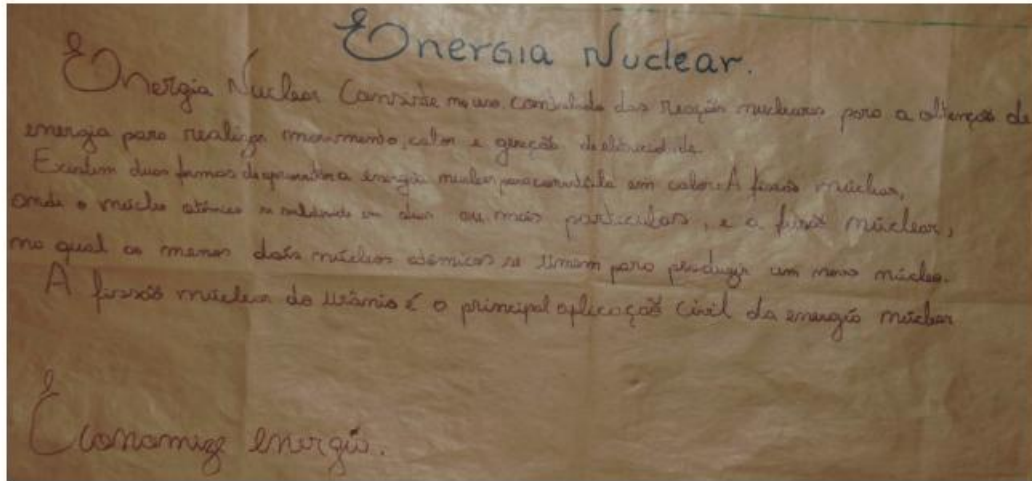 Energia Nuclear.
Energia Nuclear Consiste no uso controlado das reações nucleares para a obtenção de
energia para realizar movimento, calor e geração de eletricidade.
Existem duas formas de aproveitar a energia nuclear para convertê-la em calor: A fissão núclear,
onde o núcleo atômico se subdivide em duas ou mais particulas, e a fusão núclear,
na qual ao menos dois núcleos atômicos se unem para produzir um novo núcleo.
A fissão núclear do urânio é o principal aplicação civil da energia núclear
Economize energia.